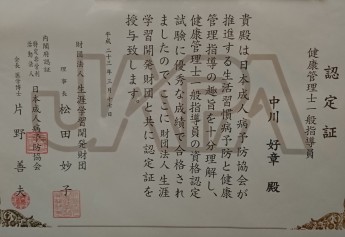 認定証
健康管理士一般指導員
中川 好章 殿
貴殿は日本成人病予防協会が
推進する生活習慣病予防と健康
管理指導の趣旨を十分理解し、
健康管理士一般指導員の資格認定
試験に優秀な成績で合格され
ましたのでここに財団法人生涯
学習開発財団と共に認定証を
授与致します。
平成二十三年三月十七日
財団法人 生涯学習開発財団
理事長 松田 妙子
内閣府認証
特定非営利活動法人 日本成人病予防協会
会長 医学博士 片野 善夫
JAPA